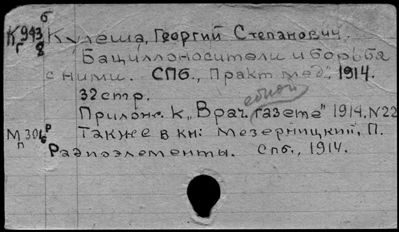 К 943 б
г 8
Кулеша, Георгий Степанович.
Бациллоносители и борьба
с ними. СПб., Практ. мед., 1914.
32 стр.
Прилож. к „Врач. газете" 1914. N22
М 301 Р
п 6
Также в кн: Мезерницкий, П.
Радиоэлементы. Спб., 1914.